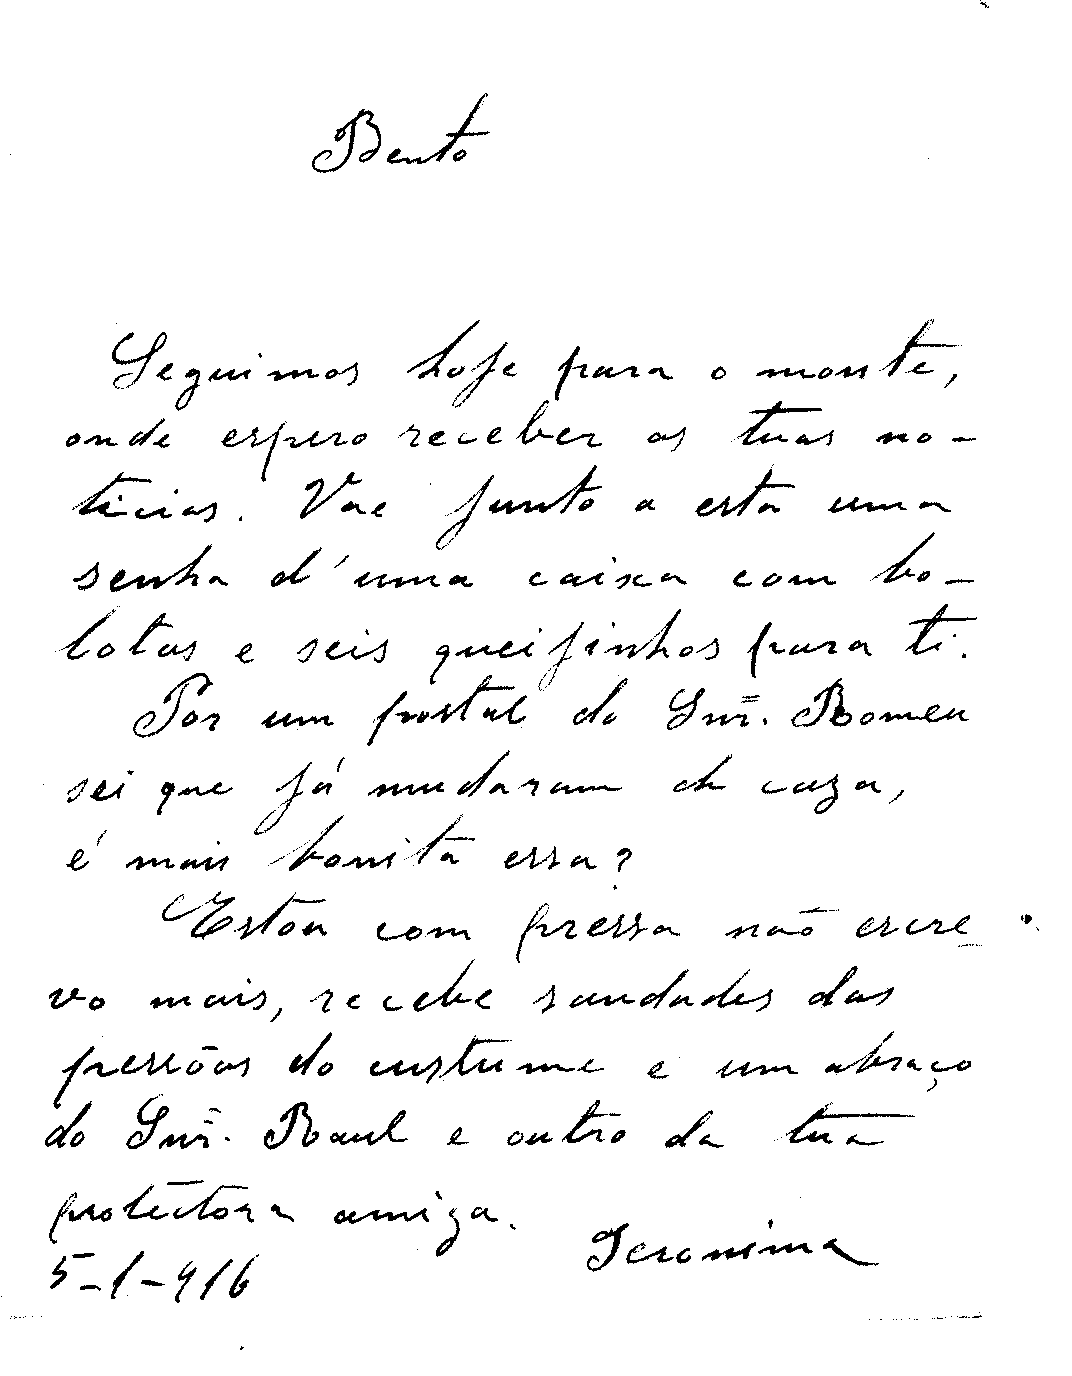 Bento
Seguimos hoje para o monte,
onde espero receber as tuas no-
ticias. Vae junto a esta uma
senha d'uma caixa com bo-
lotas e seis queijinhos para ti.
Por um postal do Snr. Romeu
sei que já mudaram de caza,
é mais bonita essa?
Estou com pressa não escre-
vo mais, recebe saudades das
pessôas do custume e um abraço
do Snr. Raul e outro da tua
protectora amiga.
Jeronima
5-1-916